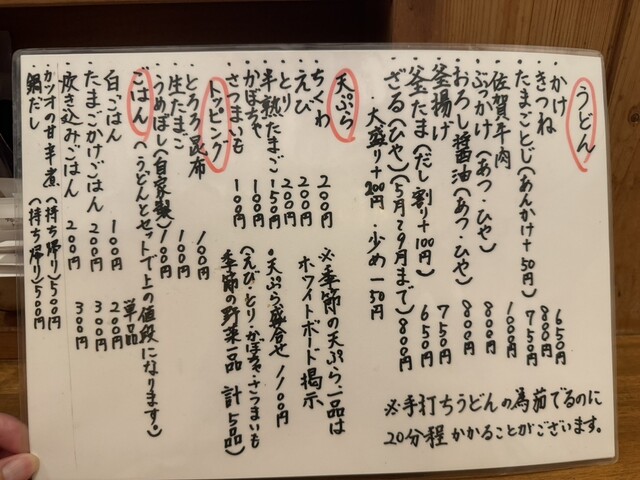 うどん
かけ 650円
きつね 800円
たまごとじ(あんかけ+50円) 750円
佐賀牛肉 1000円
ぶっかけ(あつ・ひや) 800円
おろし醤油(あつ・ひや) 800円
釜揚げ 750円
釜たま(だし割り+100円) 650円
ざる(ひや)(5月〜9月まで) 800円
・大盛り+200円 ・少め-50円
※手打ちうどんの為茹でるのに
20分程かかることがございます。
天ぷら
ちくわ 200円
えび 200円
とり 200円
半熟たまご 150円
かぼちゃ 100円
さつまいも 100円
※季節の天ぷら一品は
ホワイトボード掲示
・天ぷら盛合せ 1100円
(えび・とり・かぼちゃ・さつまいも
季節の野菜一品 計5品)
トッピング
とろろ昆布 100円
生たまご 100円
うめぼし(自家製) 100円
ごはん (うどんとセットで上の値段になります。)
単品
白ごはん 100円 200円
たまごかけごはん 200円 300円
炊き込みごはん 200円 300円
カツオの甘辛煮(持ち帰り) 500円
鍋だし (持ち帰り) 500円